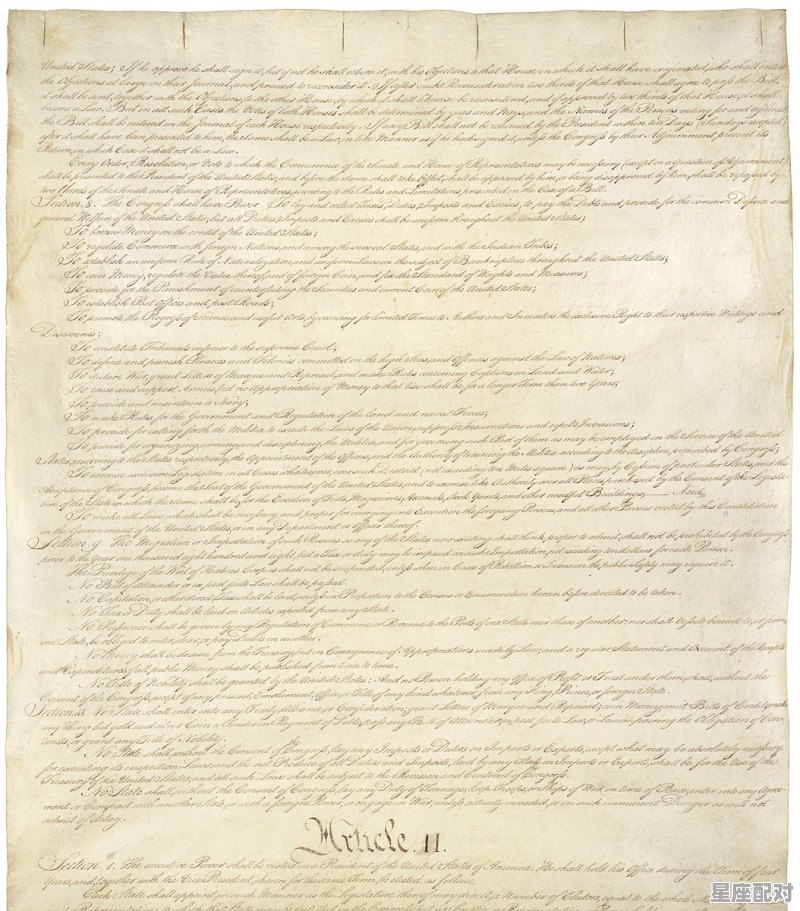 United States; If he approve he shall sign it, but if not he shall return it, with his Objections to that House in which it shall have originated, who shall enter
the Objections at large on their Journal, and proceed to reconsider it. If after such Reconsideration two thirds of that House shall agree to pass the Bill,
it shall be sent, together with the Objections, to the other House, by which it shall likewise be reconsidered, and if approved by two thirds of that House, it shall
become a Law. But in all such Cases the Votes of both Houses shall be determined by yeas and Nays, and the Names of the Persons voting for and against
the Bill shall be entered on the Journal of each House respectively. If any Bill shall not be returned by the President within ten Days (Sundays excepted)
after it shall have been presented to him, the Same shall be a Law, in like Manner as if he had signed it, unless the Congress by their Adjournment prevent its
Return, in which Case it shall not be a Law.
Every Order, Resolution, or Vote to which the Concurrence of the Senate and House of Representatives may be necessary (except on a question of Adjournment)
shall be presented to the President of the United States; and before the Same shall take Effect, shall be approved by him, or being disapproved by him, shall be repassed by
two thirds of the Senate and House of Representatives, according to the Rules and Limitations prescribed in the Case of a Bill.
Section. 8. The Congress shall have Power To lay and collect Taxes, Duties, Imposts and Excises, to pay the Debts and provide for the common Defence and
general Welfare of the United States; but all Duties, Imposts and Excises shall be uniform throughout the United States;
To borrow Money on the credit of the United States;
To regulate Commerce with foreign Nations, and among the several States, and with the Indian Tribes;
To establish an uniform Rule of Naturalization, and uniform Laws on the subject of Bankruptcies throughout the United States;
To coin Money, regulate the Value thereof, and of foreign Coin, and fix the Standard of Weights and Measures;
To provide for the Punishment of counterfeiting the Securities and current Coin of the United States;
To establish Post Offices and post Roads;
To promote the Progress of Science and useful Arts, by securing for limited Times to Authors and Inventors the exclusive Right to their respective Writings and
Discoveries;
To constitute Tribunals inferior to the supreme Court;
To define and punish Piracies and Felonies committed on the high Seas, and Offences against the Law of Nations;
To declare War, grant Letters of Marque and Reprisal, and make Rules concerning Captures on Land and Water;
To raise and support Armies, but no Appropriation of Money to that Use shall be for a longer Term than two Years;
To provide and maintain a Navy;
To make Rules for the Government and Regulation of the land and naval Forces;
To provide for calling forth the Militia to execute the Laws of the Union, suppress Insurrections and repel Invasions;
To provide for organizing, arming, and disciplining, the Militia, and for governing such Part of them as may be employed in the Service of the United
States, reserving to the States respectively, the Appointment of the Officers, and the Authority of training the Militia according to the discipline prescribed by Congress;
To exercise exclusive Legislation in all Cases whatsoever, over such District (not exceeding ten Miles square) as may, by Cession of particular States, and the
Acceptance of Congress, become the Seat of the Government of the United States, and to exercise like Authority over all Places purchased by the Consent of the Legisla-
ture of the State in which the Same shall be, for the Erection of Forts, Magazines, Arsenals, dock-Yards, and other needful Buildings;—And
To make all Laws which shall be necessary and proper for carrying into Execution the foregoing Powers, and all other Powers vested by this Constitution
in the Government of the United States, or in any Department or Officer thereof.
Section. 9. The Migration or Importation of such Persons as any of the States now existing shall think proper to admit, shall not be prohibited by the Congress
prior to the Year one thousand eight hundred and eight, but a Tax or duty may be imposed on such Importation, not exceeding ten dollars for each Person.
The Privilege of the Writ of Habeas Corpus shall not be suspended, unless when in Cases of Rebellion or Invasion the public Safety may require it.
No Bill of Attainder or ex post facto Law shall be passed.
No Capitation, or other direct, Tax shall be laid, unless in Proportion to the Census or Enumeration herein before directed to be taken.
No Tax or Duty shall be laid on Articles exported from any State.
No Preference shall be given by any Regulation of Commerce or Revenue to the Ports of one State over those of another: nor shall Vessels bound to, or from,
one State, be obliged to enter, clear, or pay Duties in another.
No Money shall be drawn from the Treasury, but in Consequence of Appropriations made by Law; and a regular Statement and Account of the Receipts
and Expenditures of all public Money shall be published from time to time.
No Title of Nobility shall be granted by the United States: And no Person holding any Office of Profit or Trust under them, shall, without the
Consent of the Congress, accept of any present, Emolument, Office, or Title, of any kind whatever, from any King, Prince, or foreign State.
Section. 10. No State shall enter into any Treaty, Alliance, or Confederation; grant Letters of Marque and Reprisal; coin Money; emit Bills of Credit; make
any Thing but gold and silver Coin a Tender in Payment of Debts; pass any Bill of Attainder, ex post facto Law, or Law impairing the Obligation of Con-
tracts, or grant any Title of Nobility.
No State shall, without the Consent of the Congress, lay any Imposts or Duties on Imports or Exports, except what may be absolutely necessary
for executing it's inspection Laws: and the net Produce of all Duties and Imposts, laid by any State on Imports or Exports, shall be for the Use of the
Treasury of the United States; and all such Laws shall be subject to the Revision and Controul of the Congress.
No State shall, without the Consent of Congress, lay any Duty of Tonnage, keep Troops, or Ships of War in time of Peace, enter into any Agree-
ment or Compact with another State, or with a foreign Power, or engage in War, unless actually invaded, or in such imminent Danger as will not
admit of delay.
Article. II.
Section. 1. The executive Power shall be vested in a President of the United States of America. He shall hold his Office during the Term of four
Years, and, together with the Vice President, chosen for the same Term, be elected, as follows
Each State shall appoint, in such Manner as the Legislature thereof may direct, a Number of Electors, equal to the whole
Representatives to which the State may
星座配对